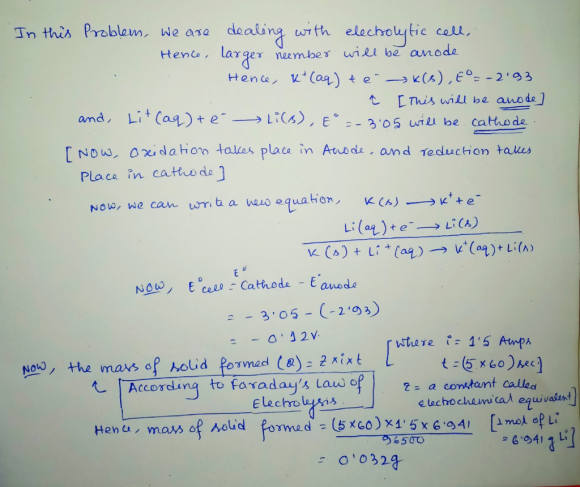 In this Problem, we are dealing with electrolytic cell,
Hence, larger number will be anode
Hence, K⁺(aq) + e⁻ → K(s), E° = -2.93
↑ [This will be anode]
and, Li⁺(aq) + e⁻ → Li(s), E° = -3.05 will be cathode.
[NOW, Oxidation takes place in Anode, and reduction takes
Place in cathode]
NOW, we can write a new equation, K(s) → K⁺ + e⁻
Li(aq) + e⁻ → Li(s)
K(s) + Li⁺(aq) → K⁺(aq) + Li(s)
NOW, E°cell = E°Cathode - E°anode
= -3.05 - (-2.93)
= -0.12V.
NOW, the mass of solid formed (Q) = Z×i×t
[where i = 1.5 Amps
t = (5×60) sec]
↑ According to Faraday's Law of
Electrolysis.
z = a constant called
electrochemical equivalent]
Hence, mass of solid formed = (5×60)×1.5×6.941 / 96500
[1 mol of Li
= 6.941 g Li]
= 0.032g